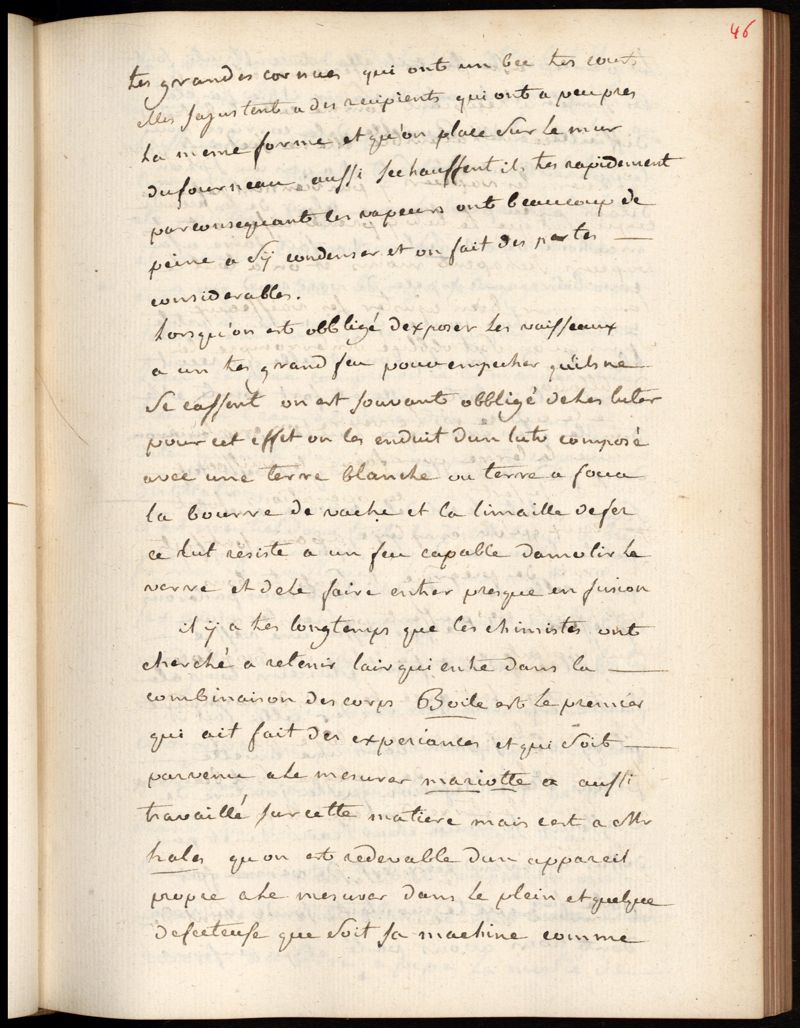 46
tres grandes cornues qui ont un bec tres court
elles sajustent a des recipients qui ont a peu pres
la meme forme et qu'on place sur le mur
du fourneau aussi sechauffent ils tres rapidement
par consequant les vapeurs ont beaucoup de
peine a s'y condenser et on fait des pertes
considerables.
Lorsqu'on est obbligé dexposer les vaisseaux
a un tres grand feu pour empecher qu'ils ne
se cassent on est souvant obbligé de les luter
pour cet effet on les enduit d'un lut composé
avec une terre blanche ou terre a four
la bourre de vache et la limaille de fer
ce lut resiste a un feu capable damolir le
verre et de le faire entrer presque en fusion
il y a tres longtemps que les chimistes ont
cherché a retenir lair qui entre dans la
combinaison des corps Boile est le premier
qui ait fait des experiances et qui soit
parvenu a le mesurer mariotte a aussi
travaillé sur cette matiere mais cest a Mr
hales qu on est redevable dun appareil
propre a le mesurer dans le plein et quelque
defecteuse que soit sa machine comme